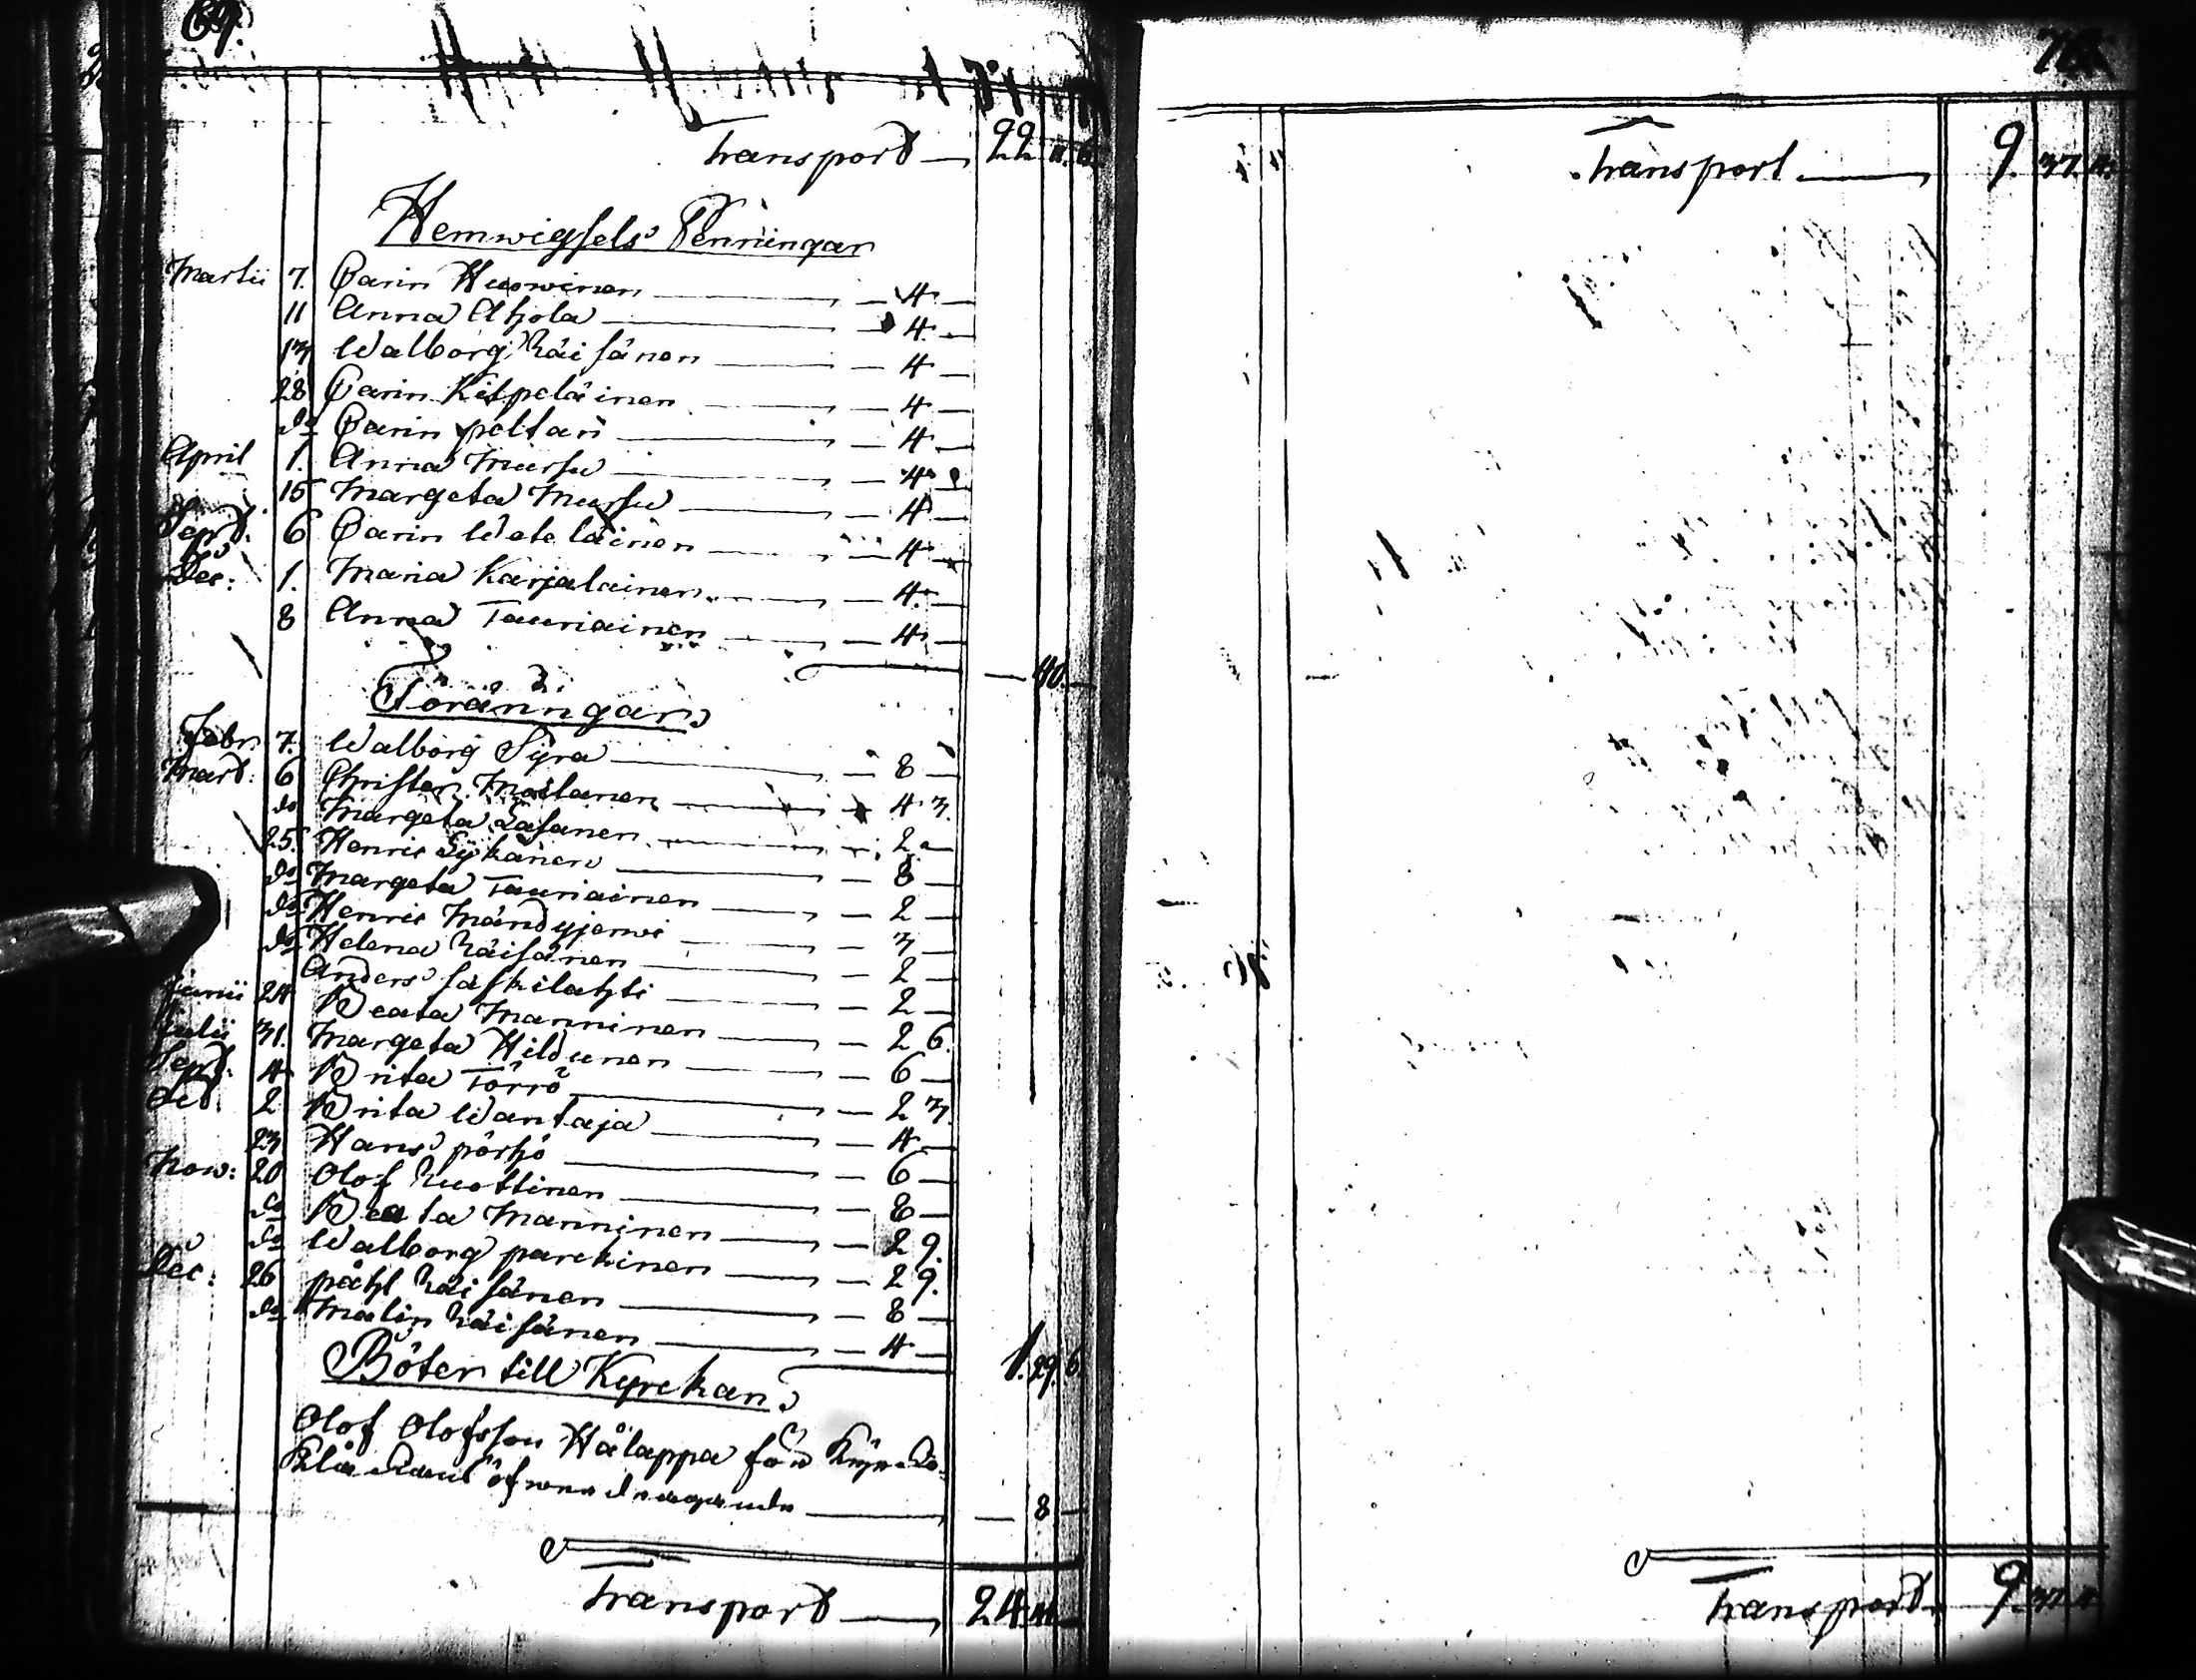 69.
Transport — 22 11. 6.
Hemwigsels Penningar
Martii 7. Carin Huowinen — 4 —
11 Anna Ahola — 4. —
13 Walborg Räisänen — 4 —
28 Carin Kilpeläinen — 4 —
do Carin peltari — 4 —
April 1. Anna Mursu — 4
15 Margeta Mursu — 4 —
Sept: 6 Carin Wäteläinen — 4 —
Dec: 1. Maria Karjalainen — 4. —
8 Anna Tauriainen — 4. —
— 40. —
Föräringar
Febr. 7. Walborg Syra — 8 —
Mart: 6 Christer Moilanen — 4 3.
do Margeta Lasanen — 2 —
25. Henric Sykänen — 8 —
do Margeta Tauriainen — 2 —
do Henric Mändyjerwi — 3 —
do Helena Räisänen — 2 —
Anders saskilahti — 2 —
Junii 24 Beata Manninen — 2 6.
Julii 31. Margeta Hildunen — 6 —
Sept: 4 Brita Törrö — 2 3.
Oct. 2 Brita Wantaja — 4 —
23 Hans pörhö — 6 —
Now: 20 Olof Ruottinen — 8 —
do Beata Manninen — 2 9.
do Walborg parckinen — 2 9.
Dec: 26 påhl Räisänen — 8 —
do Malin Räisänen — 4 —
1. 29. 6.
Böter till Kyrckan
Olof Olofsson Hålappa för Kyrckio
— 8. —
Transport — 24 41. —
Transport — 9. 37. 4.
Transport — 9. 37. 4.